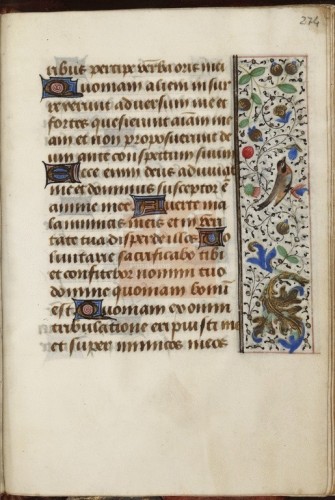 274
ribus percipe verba oris mei
Quoniam alieni insur
rexerunt adversum me et
fortes quesierunt aiam me
am et non proposuerunt de
um ante conspectum suum
Ecce enim deus adiuvat
me et dominus susceptor e
anime mee Averte ma
la inimicis meis et in veri
tate tua disperde illos Vo
luntarie sacrificabo tibi
et confitebor nomini tuo
domine quoniam bonu
est Quoniam ex omni
tribulatione eripuisti me
et super inimicos meos